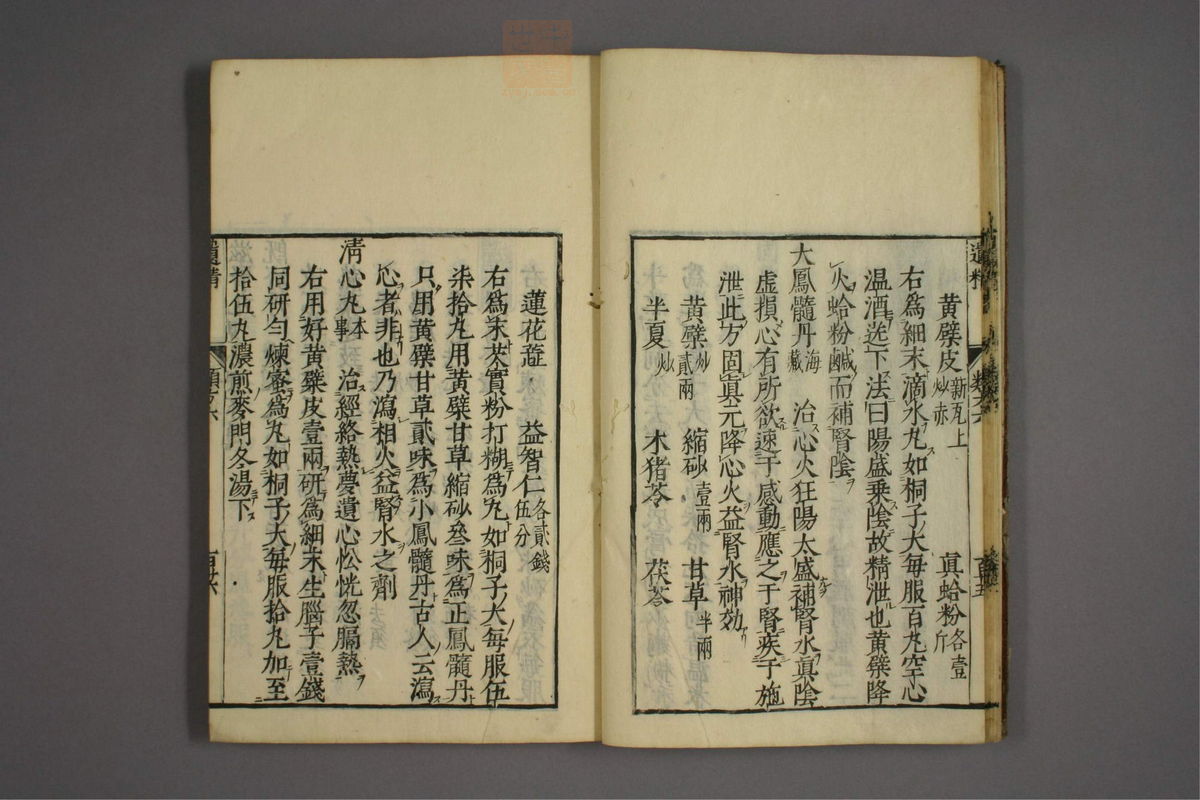 黄蘗皮新瓦上炒赤　真蛤粉各壹斤
右為細末滴水丸如桐子大每服百丸空心
温酒送下法曰陽盛乗陰故精泄也黄蘗降
火蛤粉鹹而補腎陰
大鳳髓丹海藏　治心火狂陽太盛補腎水眞陰
虚損心有所欲速于感動應之于腎疾于施
泄此方固眞元降心火益腎水神効
黄蘗炒貳兩　縮砂壹兩　甘草半兩
半夏炒　木猪苓　茯苓
蓮花蕋　益智仁各貳錢伍分
右為末芡實粉打糊為丸如桐子大每服伍
柒拾丸用黄蘗甘草縮砂叁味為正鳳髓丹
只用黄蘗甘草貳味為小鳳髓丹古人云瀉
心者非也乃瀉相火益腎水之劑
淸心丸本事　治經絡熱夢遺心忪恍忽膈熱
右用好黄蘗皮壹兩研為細末生腦子壹錢
同研勻煉蜜為丸如桐子大每服拾丸加至
拾伍丸濃煎麥門冬湯下
遺精